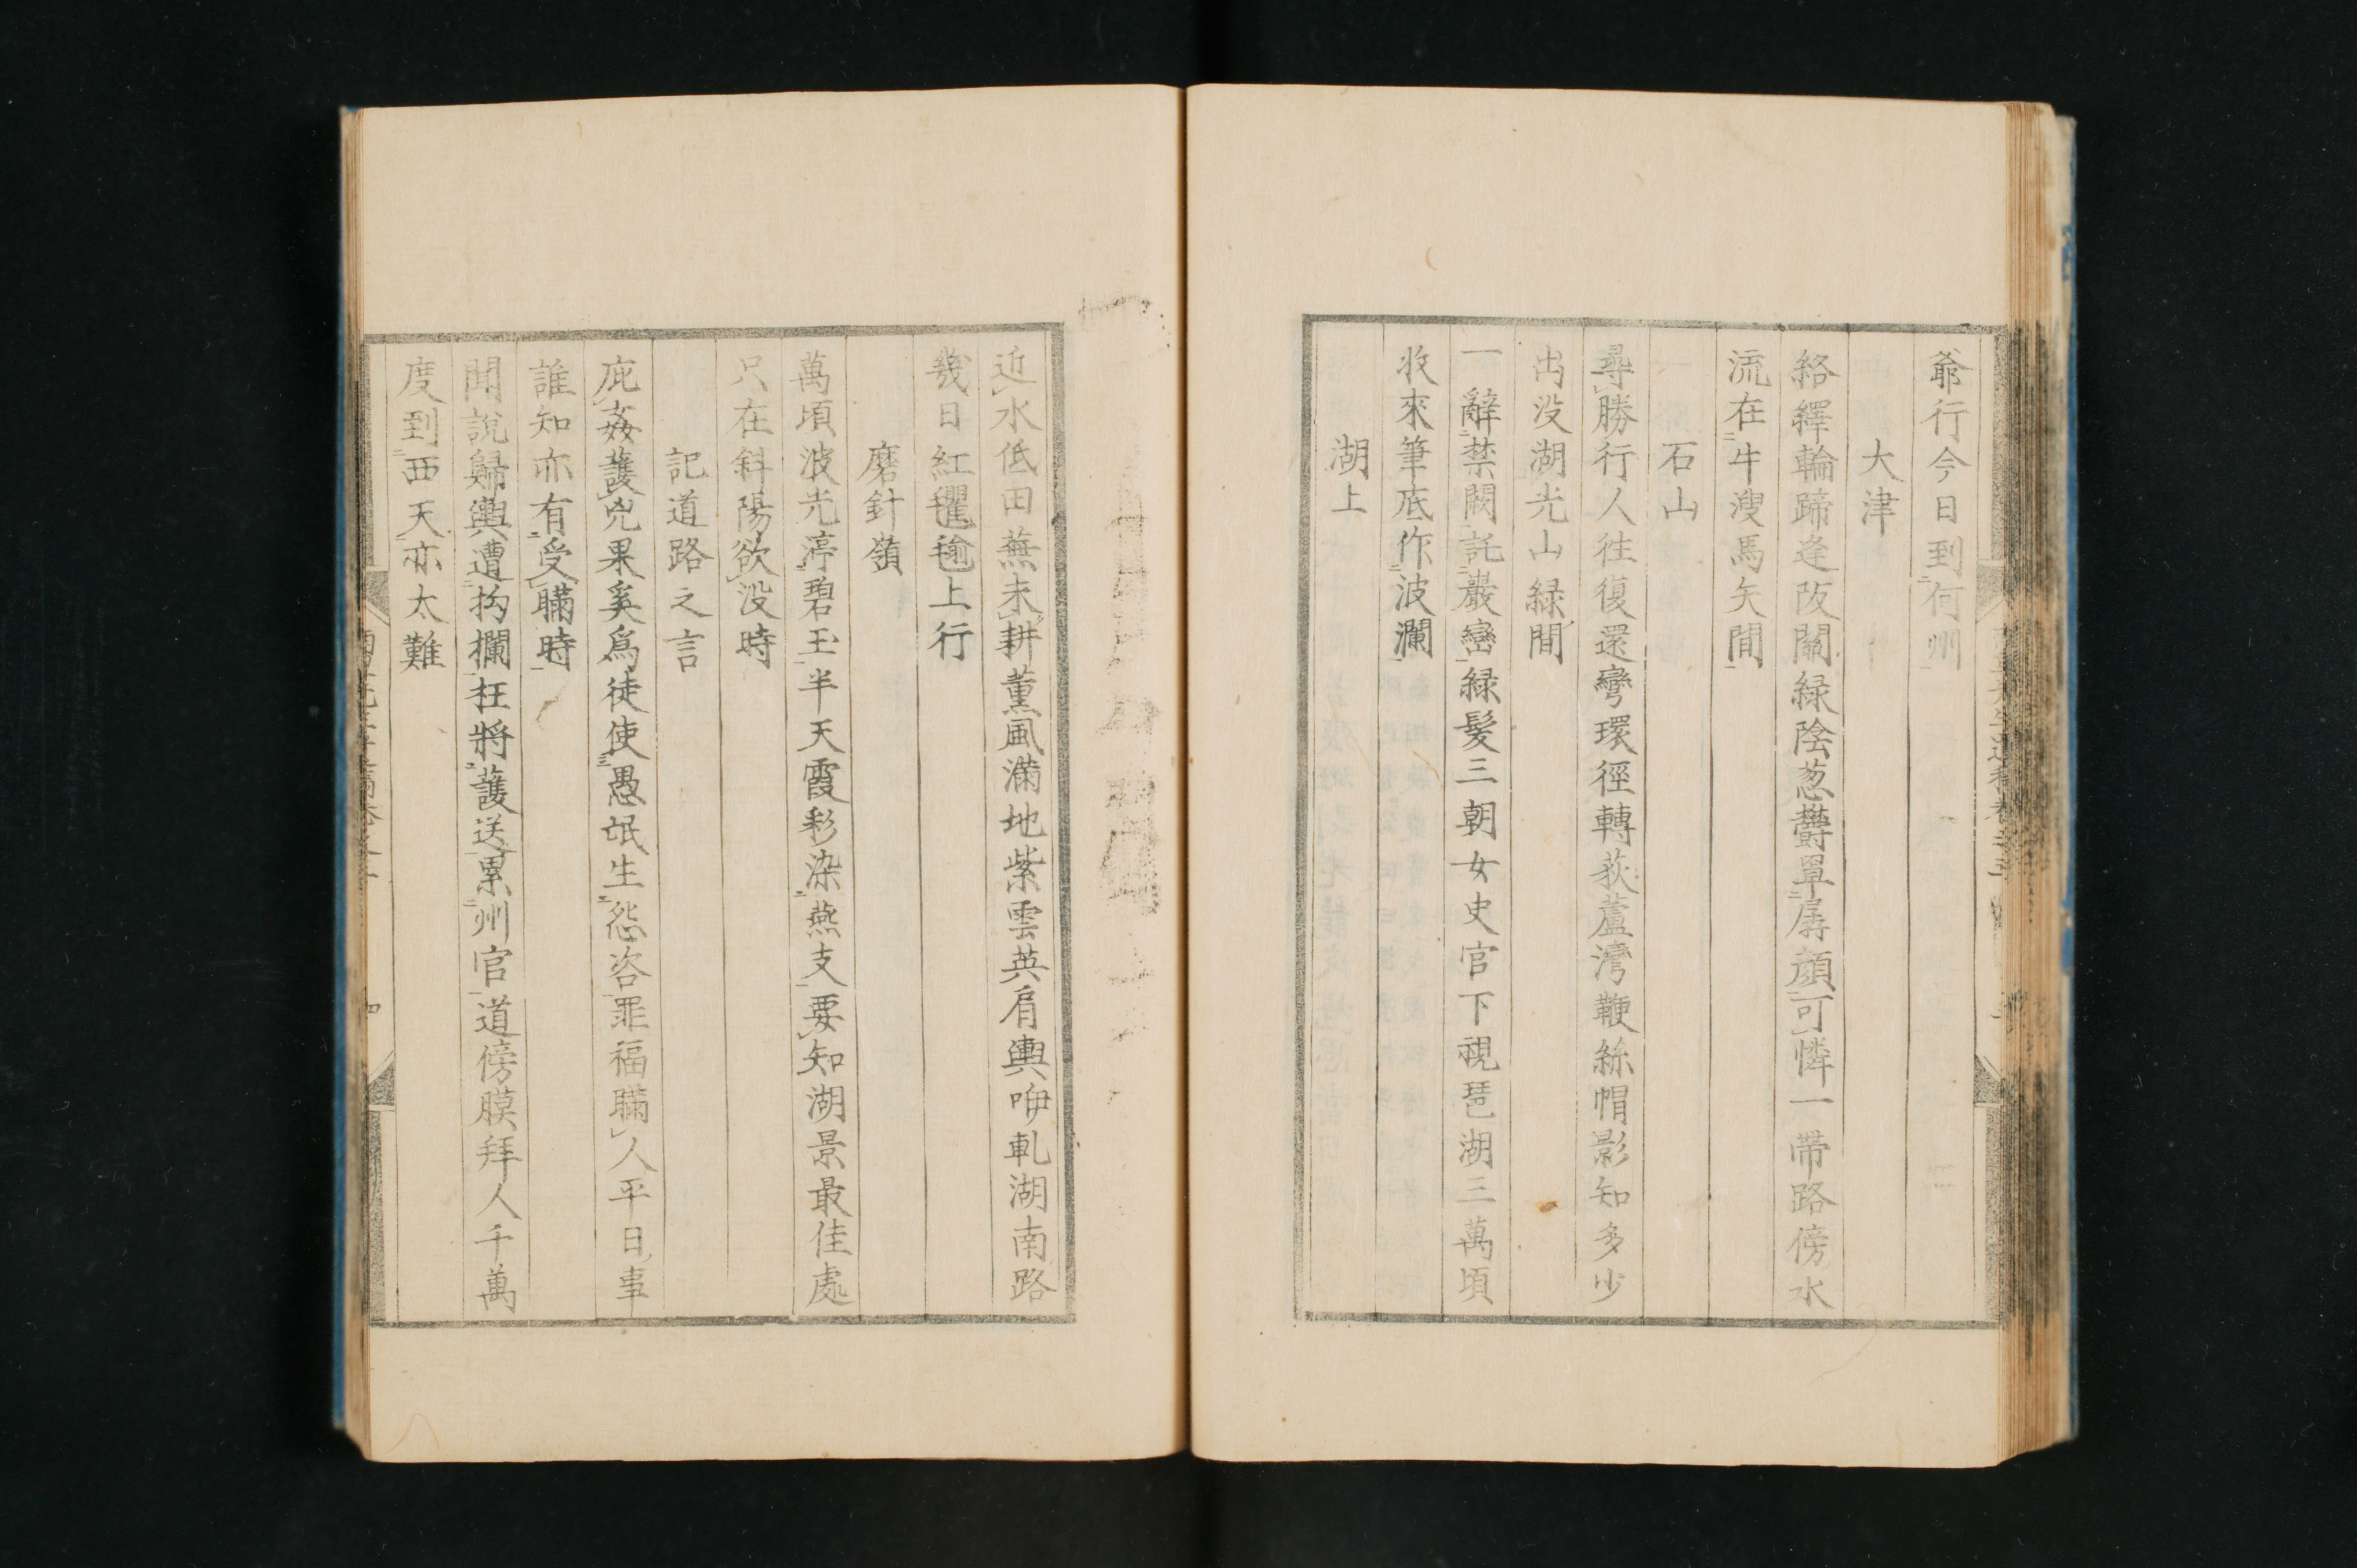 爺行今日到何州
大津
絡繹輪蹄逢阪關緑陰葱欝罩孱顔可憐一帶路傍水
流在牛溲馬矢間
石山
尋勝行人往復還彎環徑轉荻蘆灣鞭絲帽影知多少
出没湖光山緑間
一辭禁闕託巖巒緑髪三朝女史官下視琶湖三萬頃
收來筆底作波瀾
湖上
近水低田蕪未耕薫風滿地紫雲英肩輿咿軋湖南路
幾日紅氍毹上行
磨針嶺
萬頃波光渟碧玉半天霞彩染燕支要知湖景最佳處
只在斜陽欲没時
記道路之言
庇姦護兇果奚爲徒使愚氓生怨咨罪福瞞人平日事
誰知亦有受瞞時
聞說歸輿遭抅攔枉將護送累州官道傍膜拜人千萬
度到西天亦太難